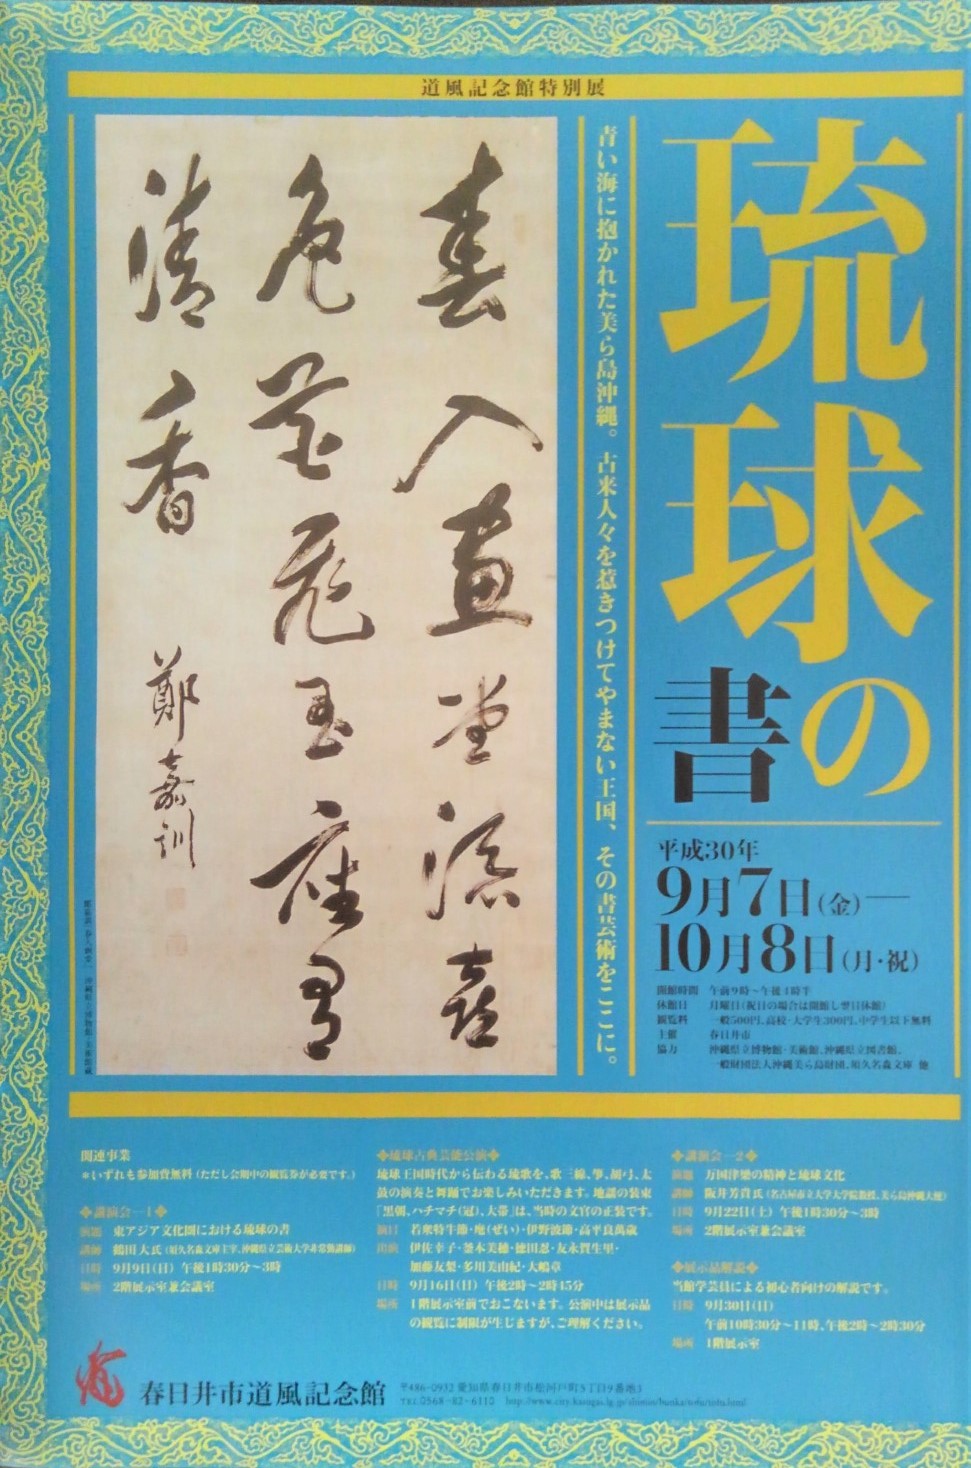 道風記念館特別展
琉球の
書
青い海に抱かれた美ら島沖縄。古来人々を惹きつけてやまない王国、その書芸術をここに。
春入畫堂添喜
色花飛玉座有
清香
鄭嘉訓
平成30年
9月7日(金)―
10月8日(月・祝)
開館時間 午前9時~午後4時半
休館日 月曜日(祝日の場合は開館し翌日休館)
観覧料 一般500円、高校・大学生300円、中学生以下無料
主催 春日井市
協力 沖縄県立博物館・美術館、沖縄県立図書館、
一般財団法人沖縄美ら島財団、須久名森文庫 他
関連事業
*いずれも参加費無料(ただし会期中の観覧券が必要です。)
◆講演会―1◆
演題 東アジア文化圏における琉球の書
講師 鶴田大氏(須久名森文庫主宰、沖縄県立芸術大学非常勤講師)
日時 9月9日(日) 午後1時30分~3時
場所 2階展示室兼会議室
◆琉球古典芸能公演◆
琉球王国時代から伝わる琉歌を、歌三線、箏、胡弓、太
鼓の演奏と舞踊でお楽しみいただきます。地謡の装束
「黒朝、ハチマチ(冠)、大帯」は、当時の文官の正装です。
演目 若衆特牛節・麾(ぜい)・伊野波節・高平良萬歳
出演 伊佐幸子・釜本美穂・徳田忍・友永賀生里・
加藤友梨・多川美由紀・大嶋章
日時 9月16日(日) 午後2時~2時45分
場所 1階展示室前でおこないます。公演中は展示品
の観覧に制限が生じますが、ご理解ください。
◆講演会―2◆
演題 万国津梁の精神と琉球文化
講師 阪井芳貴氏(名古屋市立大学大学院教授、美ら島沖縄大使)
日時 9月22日(土) 午後1時30分~3時
場所 2階展示室兼会議室
◆展示品解説◆
当館学芸員による初心者向けの解説です。
日時 9月30日(日)
午前10時30分~11時、午後2時~2時30分
場所 1階展示室
春日井市道風記念館
〒486-0932 愛知県春日井市松河戸町5丁目9番地3
TEL 0568-82-6110